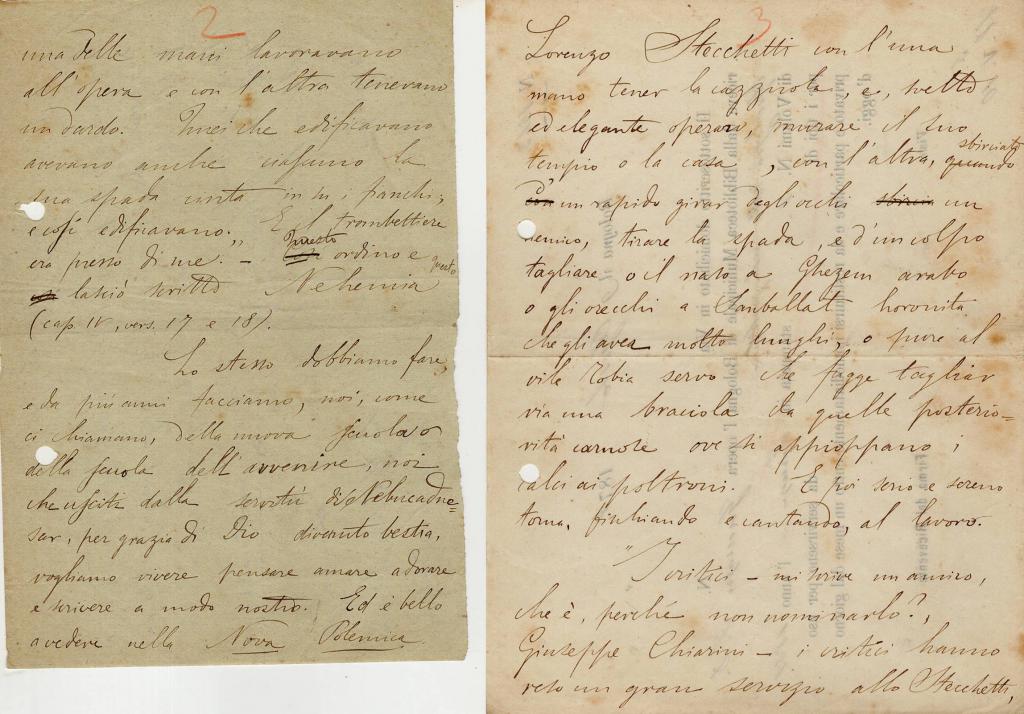 2
una delle mani lavoravano
all'opera e con l'altra tenevano
un dardo. Quei che edificavano
avevano anche ciascuno la
sua spada cinta in su i fianchi;
e così edificavano. E il trombettiere
era presso di me." — Questo ordinò e
questo lasciò scritto Nehemia
(cap. IV, vers. 17 e 18).
Lo stesso dobbiamo fare,
e da più anni facciamo, noi, come
ci chiamano, della nuova scuola o
della scuola dell'avvenire, noi
che usciti dalla servitù di Nebucadne=
sar, per grazia di Dio divenuto bestia,
vogliamo vivere pensare amare adorare
e scrivere a modo nostro. Ed è bello
a vedere nella Nova Polemica
3
Lorenzo Stecchetti con l'una
mano tener la cazzuola, e, svelto
ed elegante operaio, murare il suo
tempio o la casa, con l'altra, sbirciato
con un rapido girar degli occhi un
nemico, tirare la spada, e d'un colpo
tagliare o il naso a Ghezem arabo
o gli orecchi a Sanballat horonita
che gli avea molto lunghi, o pure al
vile Tobia servo che fugge tagliar
via una braciola da quelle posterio=
rità carnose ove si appioppano i
calci ai poltroni. E poi serio e sereno
torna, fischiando e cantando, al lavoro.
"I critici — mi scrive un amico,
che è, perché non nominarlo?,
Giuseppe Chiarini — i critici hanno
reso un gran servizio allo Stecchetti,